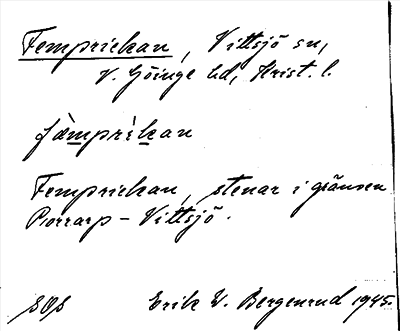 Femprickan, Vittsjö sn,
V. Göinge hd, Krist. l.
fæ̀mprìkan
Femprickan, stenar i gränsen
Porrarp - Vittsjö.
Erik W. Bergenrud 1945.